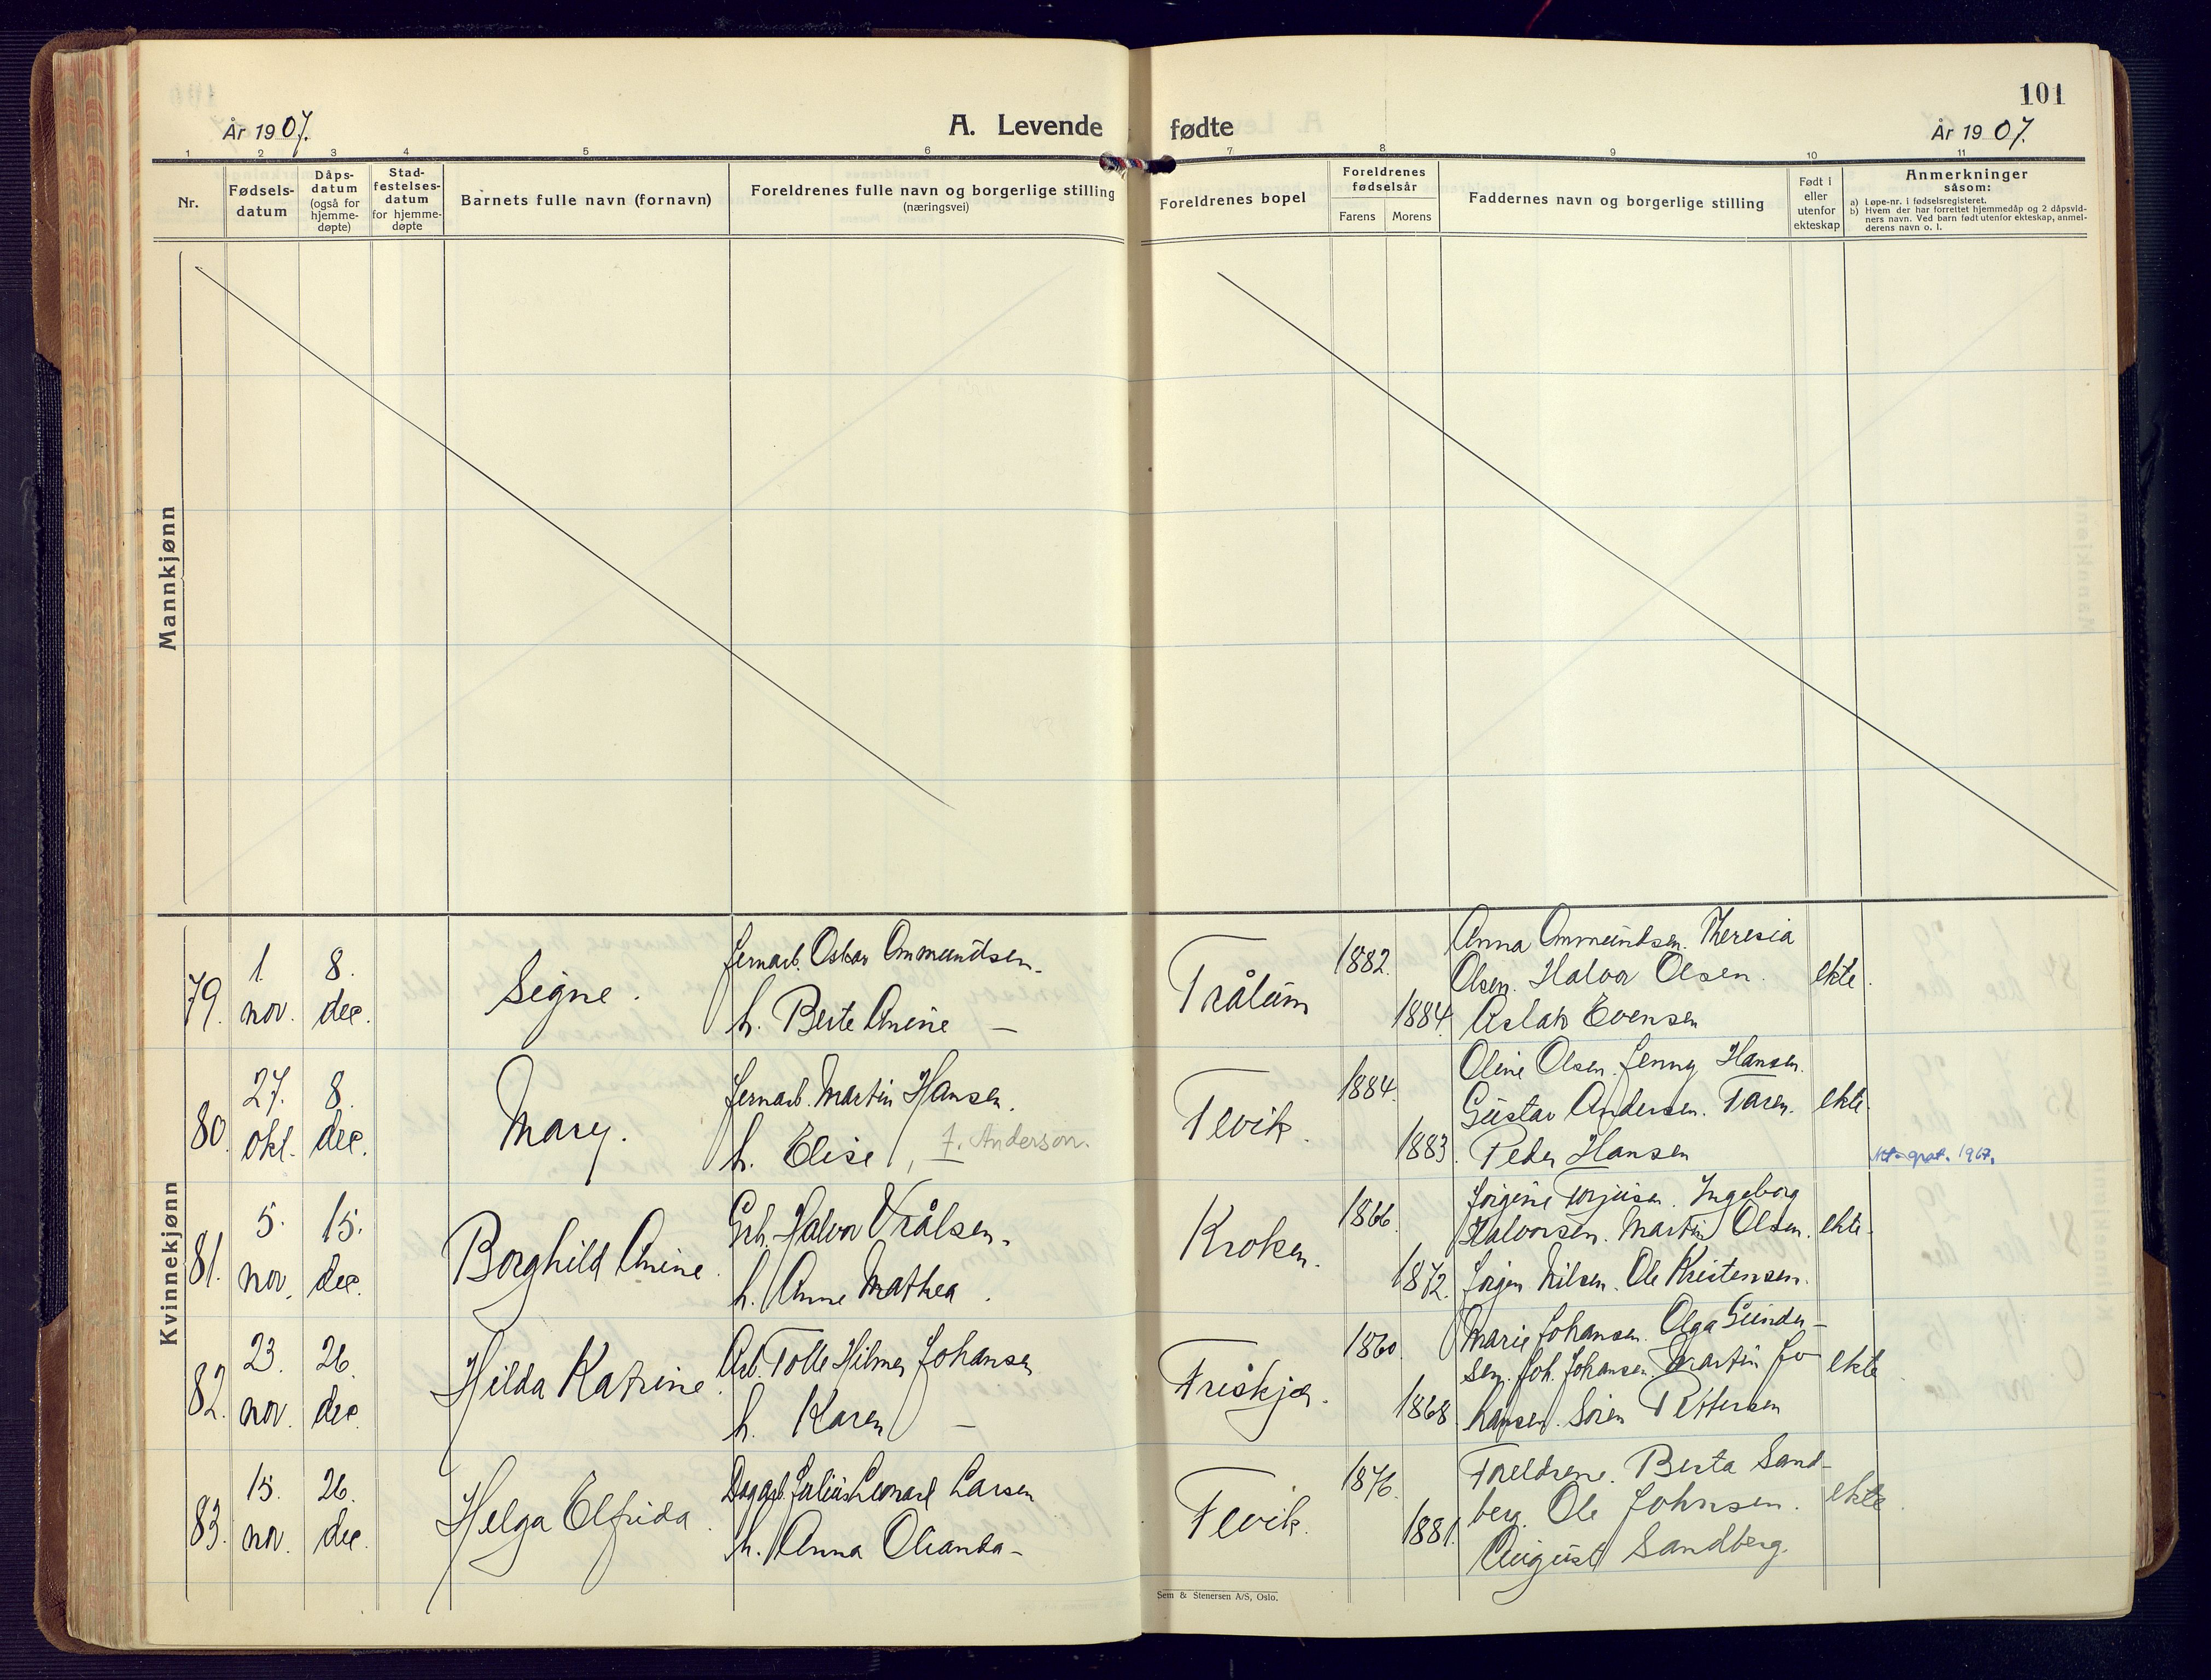 101
År 1907.
A. Levende fødte
År 1907.
1 2 3 4 5 6 7 8 9 10 11
Nr.
Fødsels-
datum
Dåps-
datum
(også for
hjemme-
døpte)
Stad-
festelses-
datum
for hjemme-
døpte
Barnets fulle navn (fornavn)
Foreldrenes fulle navn og borgerlige stilling
(næringsvei)
Foreldrenes bopel
Foreldrenes
fødselsår
Farens
Morens
Faddernes navn og borgerlige stilling
Født i
eller
utenfor
ekteskap
Anmerkninger
såsom:
a) Løpe-nr. i fødselsregisteret.
b) Hvem der har forrettet hjemmedåp og 2 dåpsvid-
ners navn. Ved barn født utenfor ekteskap, anmel-
derens navn o. l.
Mannkjønn
Kvinnekjønn
79.
1
nov.
8.
dec.
Signe.
Jernarb. Oskar Ommundsen.
h. Berte Anine —
Trålum
1882.
1884.
Anna Ommundsen. Theresia
Olsen. Halvor Olsen.
Aslak Evensen
ekte.
80.
27.
okt.
8.
dec.
Mary.
Jernarb. Martin Hansen.
h. Elise, f. Anderson.
Fevik.
1884.
1883.
Oline Olsen. Jenny Hansen.
Gustav Andersen. Faren.
Peder Hansen
ekte.
1967.
81.
5.
nov.
15.
dec.
Borghild Anine.
Grb. Halvor Vrålsen.
h. Anne Mathea.
Kroken.
1866.
1872.
Jørgine Torjusen. Ingeborg
Halvorsen. Martin Olsen.
Jørgen Nilsen. Ole Kristensen.
ekte.
82.
23.
nov.
26.
dec.
Hilda Katrine.
Arb. Tolle Hilmer Johansen
h. Karen —
Friskjær.
1860.
1868.
Marie Johansen. Olga Gunder-
sen. Joh. Johansen. Martin Jo-
hansen. Sören Pettersen
ekte
83.
15.
nov.
26.
dec.
Helga Elfrida.
Dagarb. Julius Leonard Larsen
h. Anna Olianda —
Fevik.
1876.
1881.
Foreldrene. Berta Sand-
berg. Ole Johnsen.
August Sandberg.
ekte.
Sem & Stenersen A/S, Oslo.